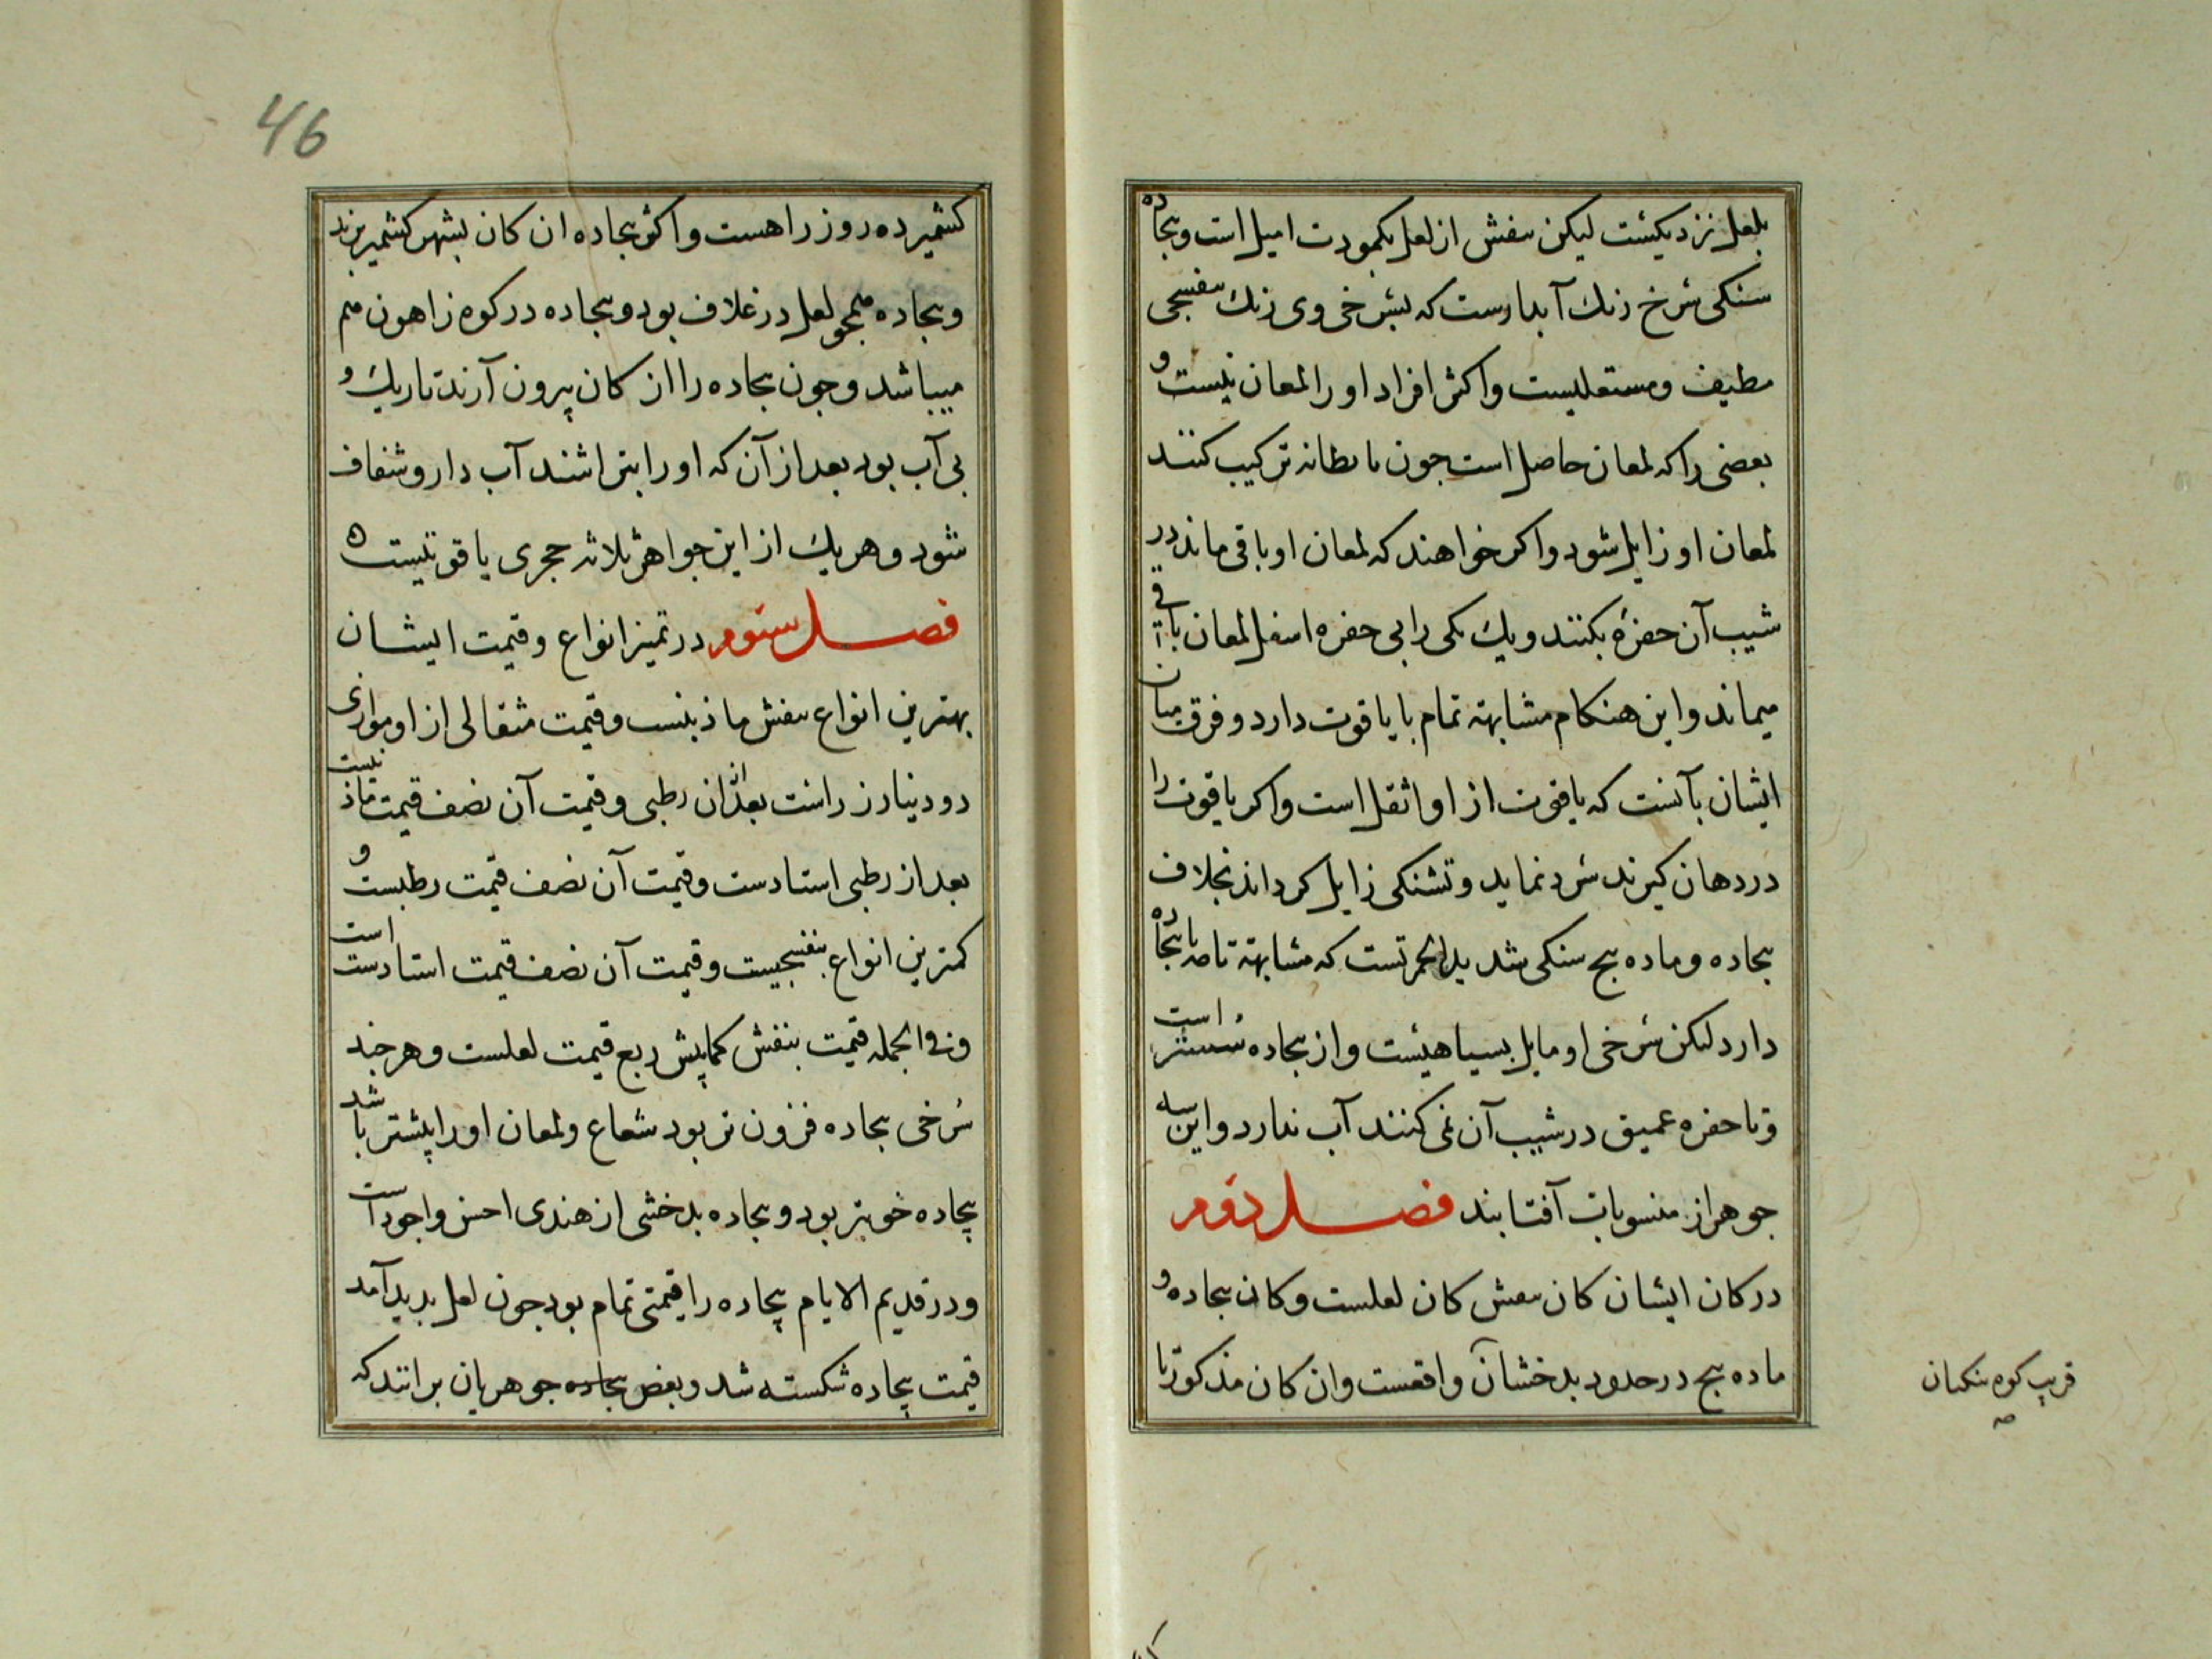 بلعل نزدیکست لیکن بنفش از لعل بکمودت امیل است وبجاده
سنکی سرخ رنك آبدارست که بسرخی وی رنك بنفسجی
مطیف ومستعلیست واکثر افراد او را لمعان نیست و
بعضی را که لمعان حاصل است جون با بطانه ترکیب کنند
لمعان او زایل شود واکر خواهند که لمعان او باقی ماند در
شیب آن حفرۀ بکنند ویك یکی را بی حفره اسفل لمعان باقی
میماند واین هنکام مشابهته تمام با یاقوت دارد وفرق میان
ایشان بآنست که یاقوت از او اثقل است واکر یاقوت را
در دهان کیرند سرد نماید وتشنکی زایل کرداند بخلاف
بجاده وماده بیج سنکی شدید الحمرتست که مشابهتة تامه با بجاده
دارد لیکن سرخی او مایل بسیاهیست واز بجاده سست تر است
وتا حفره عمیق در شیب آن نمی کنند آب ندارد واین سه
جوهر از منسوبات آفتابند فصل دوم
در کان ایشان کان بنفش کان لعلست وکان بجاده و
ماده بیج در حدود بدخشان واقعست وان کان مذکور تا
قریب کوه بنکبان
صه
46
کشمیر ده روز راهست واکثر بجاده ان کان بشهر کشمیر برند
وبجاده همچو لعل در غلاف بود وبجاده در کوه زاهون هم
میباشد وجون بجاده را از کان بیرون آرند تاریك و
بی آب بود بعد از آن که او را بتراشند آب دار وشفاف
شود وهر یك از این جواهر ثلاثه حجری یاقوتیست ه
فصل سوم در تمیز انواع وقیمت ایشان
بهترین انواع بنفش ماذینست وقیمت مثقالی از او موازی
دو دینار زراست بعد از ان رطبی وقیمت آن نصف قیمت ماذنیست
بعد از رطبی استادست وقیمت آن نصف قیمت رطبیست و
کمترین انواع بنفسجیست وقیمت آن نصف قیمت استادست است
وفی الجمله قیمت بنفش کمابیش ربع قیمت لعلست وهر جند
سرخی بجاده فزون تر بود شعاع ولمعان او را بیشتر باشد
بجاده خوبتر بود وبجاده بدخشی از هندی احسن واجود است
ودر قدیم الایام بجاده را قیمتی تمام بود جون لعل بدید آمد
قیمت بجاده شکسته شد وبعض بجاده جوهریان برانند که